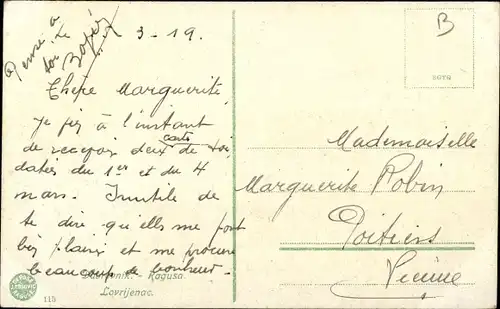 Pensé à
toi
3-19.
Chère Marguerite
Je à l'instant
carte
de recevoir deux de toi,
datées du 1er et du 4
mars. Inutile de
te dire qu'elles me font
plaisir et me procure
beaucoup de bonheur.
Dubrovnik. - Ragusa.
Lovrijenac.
115
B
Mademoiselle
Marguerite Robin
Poitiers
Vienne